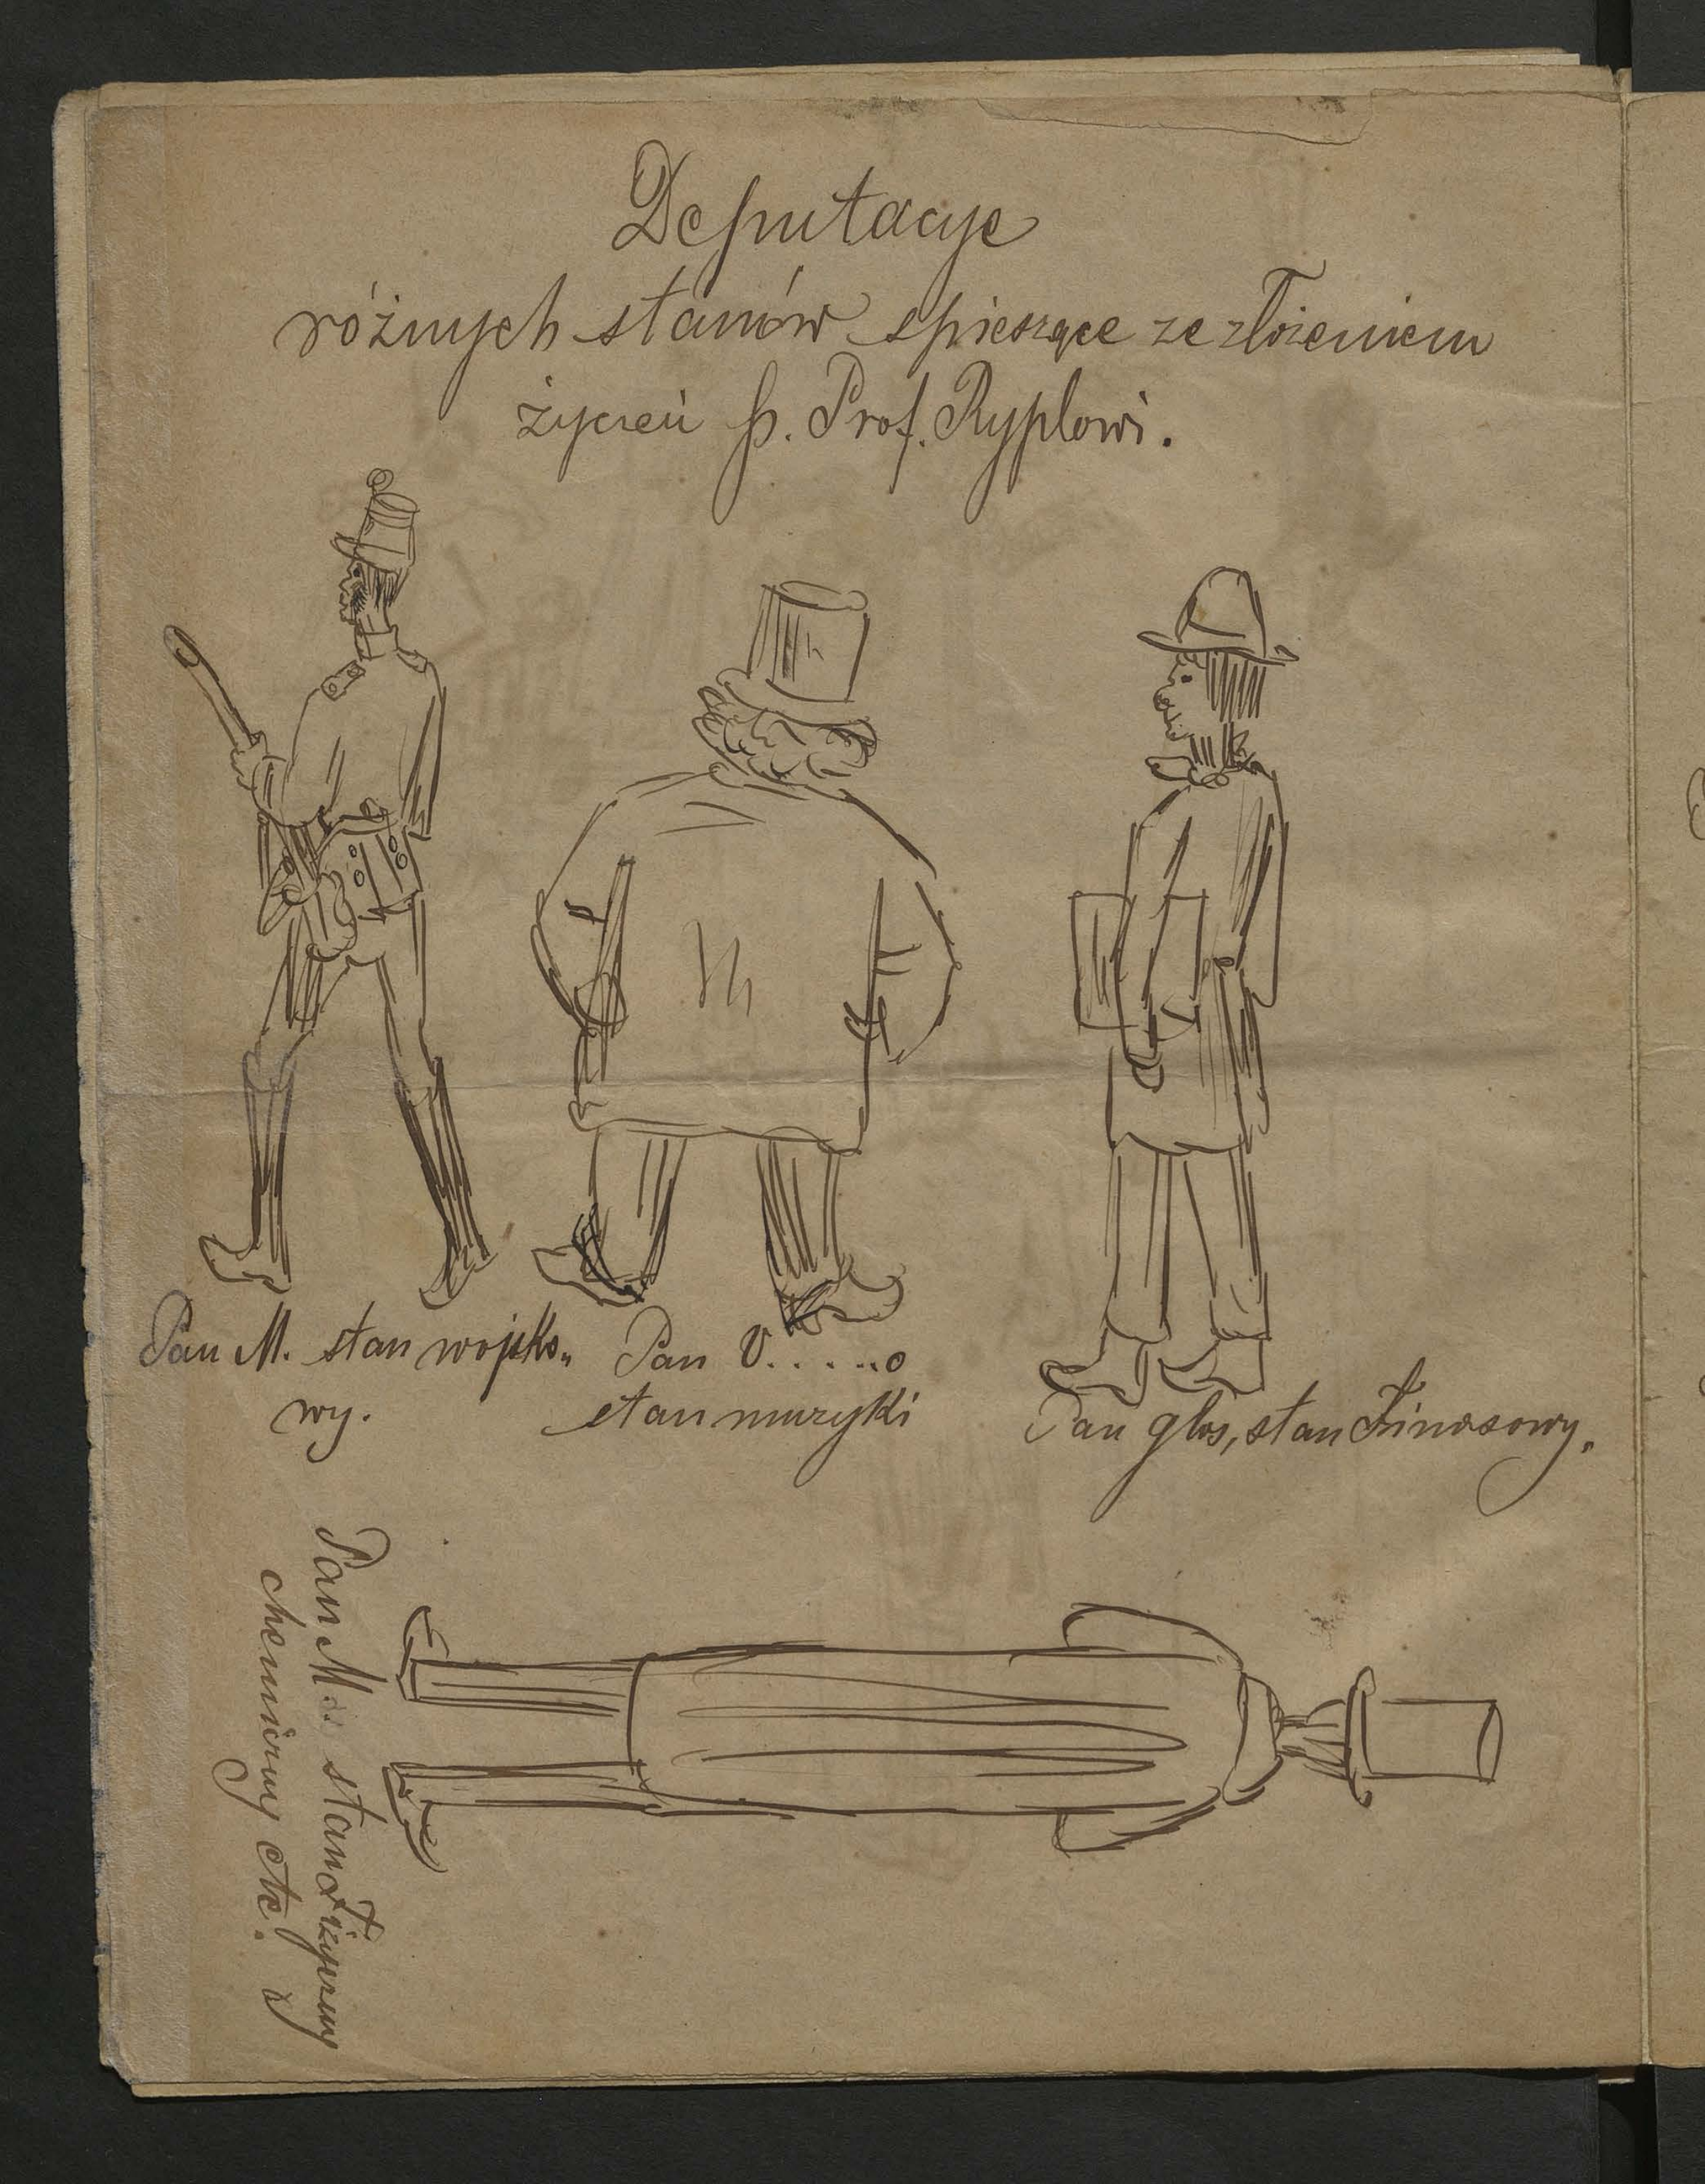 Deputacye
różnych stanów spieszące ze złożeniem
życzeń p. Prof. Ryplowi.
Pan M. stan wojsko„
wy.
Pan V.....o
stan muzyki
Pan glos, stan Finasowy.
Pan M... stan Fizyczny
chemiczny etc.